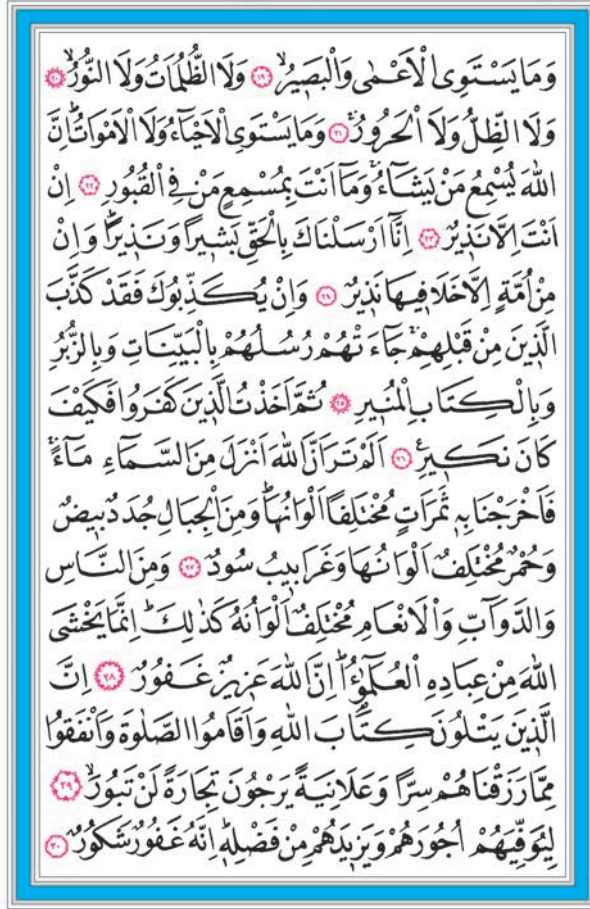 وَمَا يَسْتَوِى الْاَعْمٰى وَالْبَصٖيرُۙ ﴿١٩﴾ وَلَا الظُّلُمَاتُ وَلَا النُّورُۙ ﴿٢٠﴾
وَلَا الظِّلُّ وَلَا الْحَرُورُۚ ﴿٢١﴾ وَمَا يَسْتَوِى الْاَحْيَٓاءُ وَلَا الْاَمْوَاتُؕ اِنَّ
اللّٰهَ يُسْمِعُ مَنْ يَشَٓاءُۚ وَمَٓا اَنْتَ بِمُسْمِعٍ مَنْ فِى الْقُبُورِ ﴿٢٢﴾ اِنْ
اَنْتَ اِلَّا نَذٖيرٌ ﴿٢٣﴾ اِنَّٓا اَرْسَلْنَاكَ بِالْحَقِّ بَشٖيراً وَنَذٖيراًؕ وَاِنْ
مِنْ اُمَّةٍ اِلَّا خَلَا فٖيهَا نَذٖيرٌ ﴿٢٤﴾ وَاِنْ يُكَذِّبُوكَ فَقَدْ كَذَّبَ
الَّذٖينَ مِنْ قَبْلِهِمْۚ جَٓاءَتْهُمْ رُسُلُهُمْ بِالْبَيِّنَاتِ وَبِالزُّبُرِ
وَبِالْكِتَابِ الْمُنٖيرِ ﴿٢٥﴾ ثُمَّ اَخَذْتُ الَّذٖينَ كَفَرُوا فَكَيْفَ
كَانَ نَكٖيرِ۟ ﴿٢٦﴾ اَلَمْ تَرَ اَنَّ اللّٰهَ اَنْزَلَ مِنَ السَّمَٓاءِ مَٓاءًۚ
فَاَخْرَجْنَا بِهٖ ثَمَرَاتٍ مُخْتَلِفاً اَلْوَانُهَاؕ وَمِنَ الْجِبَالِ جُدَدٌ بٖيضٌ
وَحُمْرٌ مُخْتَلِفٌ اَلْوَانُهَا وَغَرَابٖيبُ سُودٌ ﴿٢٧﴾ وَمِنَ النَّاسِ
وَالدَّوَٓابِّ وَالْاَنْعَامِ مُخْتَلِفٌ اَلْوَانُهُ كَذٰلِكَؕ اِنَّمَا يَخْشَى
اللّٰهَ مِنْ عِبَادِهِ الْعُلَمٰٓؤُ۬اؕ اِنَّ اللّٰهَ عَزٖيزٌ غَفُورٌ ﴿٢٨﴾ اِنَّ
الَّذٖينَ يَتْلُونَ كِتَابَ اللّٰهِ وَاَقَامُوا الصَّلٰوةَ وَاَنْفَقُوا
مِمَّا رَزَقْنَاهُمْ سِراًّ وَعَلَانِيَةً يَرْجُونَ تِجَارَةً لَنْ تَبُورَۙ ﴿٢٩﴾
لِيُوَفِّيَهُمْ اُجُورَهُمْ وَيَزٖيدَهُمْ مِنْ فَضْلِهٖؕ اِنَّهُ غَفُورٌ شَكُورٌ ﴿٣٠﴾